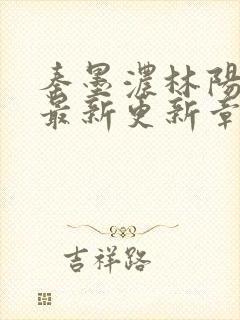 秦墨濃林陽
最新更新章
吉祥路